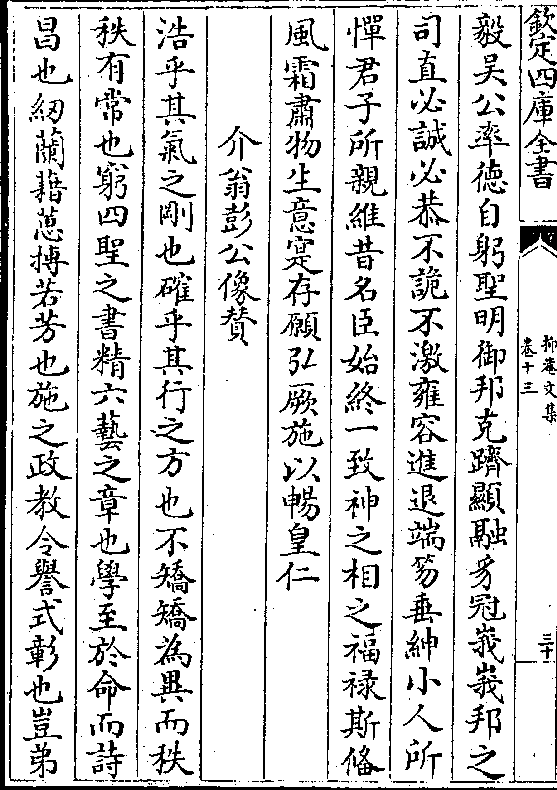 欽定四庫全書
抑菴文集
卷十三
三十
毅吴公率徳自躬聖明御邦克躋顯融豸冠峩峩邦之
司直必誠必恭不詭不激雍容進退端笏垂紳小人所
憚君子所親維昔名臣始終一致神之相之福禄斯偹
風霜肅物生意寔存願弘厥施以暢皇仁
介翁彭公像賛
浩乎其氣之剛也確乎其行之方也不矯矯為異而秩
秩有常也窮四聖之書精六藝之章也學至於命而詩
昌也紉蘭藉蕙搏若芳也施之政教令譽式彰也豈弟